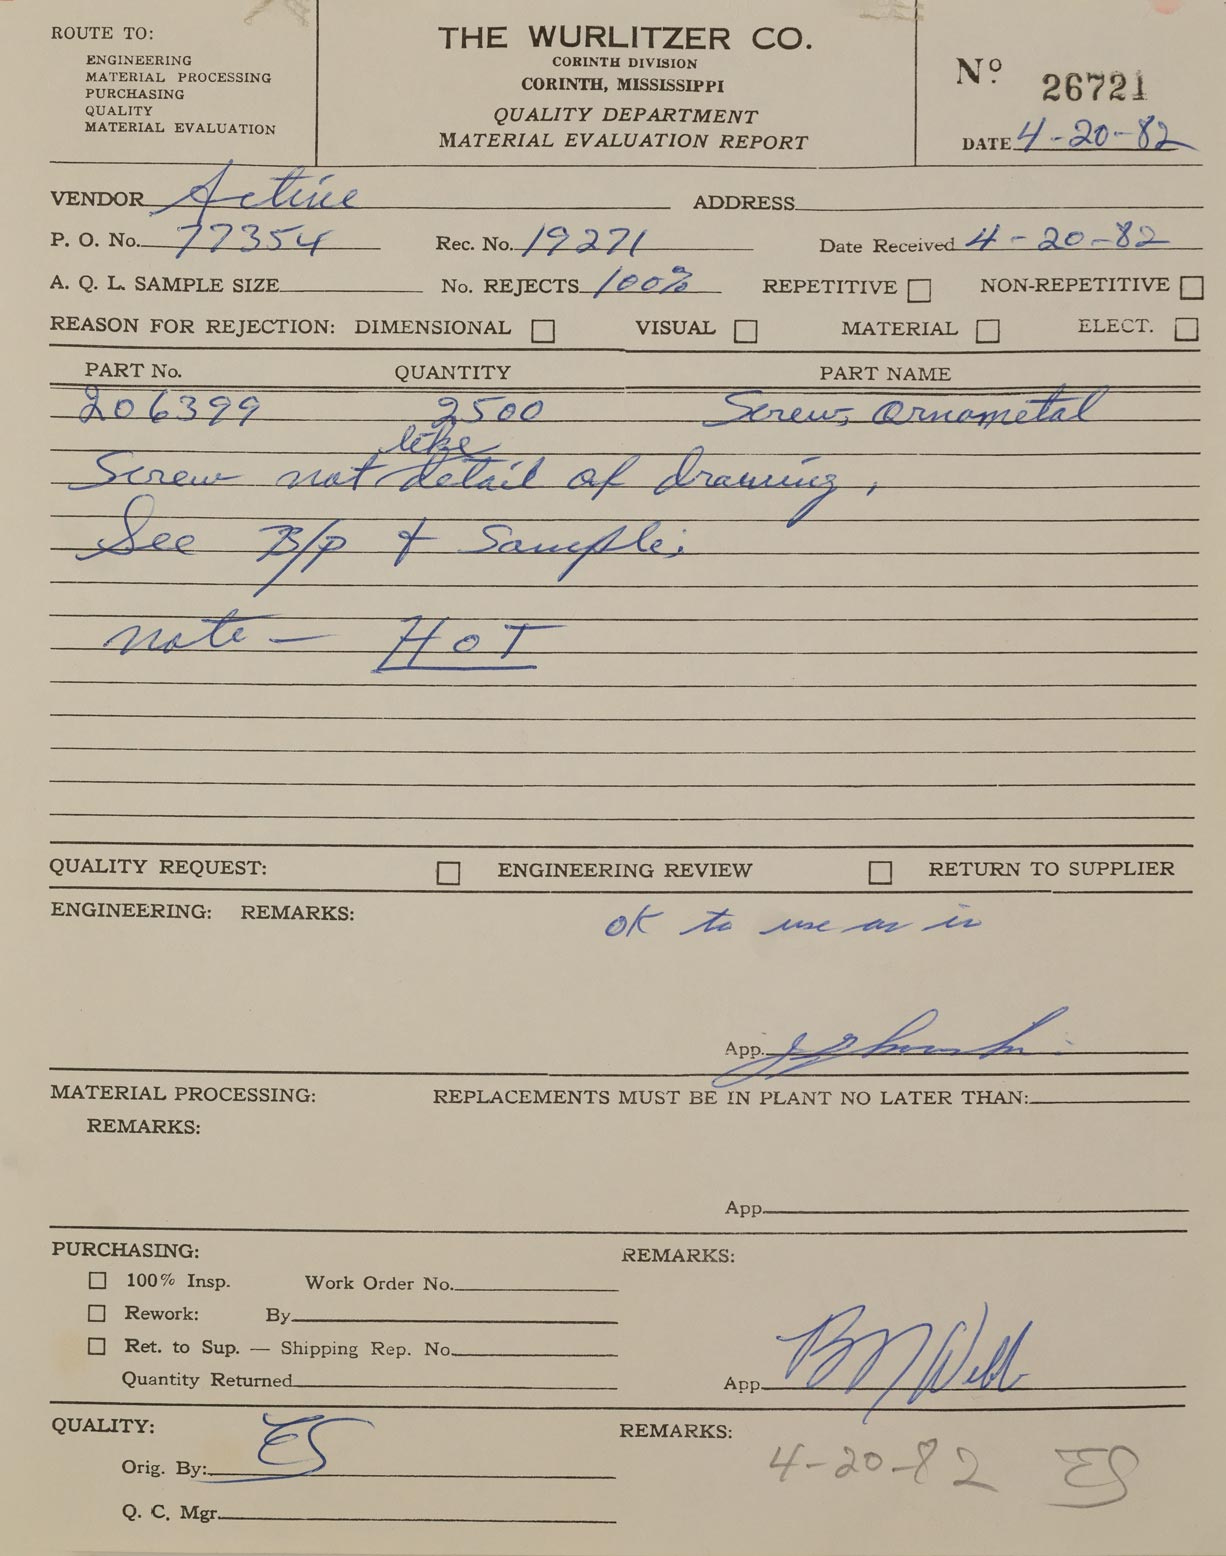 ROUTE TO:
ENGINEERING
MATERIAL PROCESSING
PURCHASING
QUALITY
MATERIAL EVALUATION
THE WURLITZER CO.
CORINTH DIVISION
CORINTH, MISSISSIPPI
QUALITY DEPARTMENT
MATERIAL EVALUATION REPORT
No 26721
DATE 4-20-82
VENDOR Active ADDRESS
P. O. No. 77354 Rec. No. 19271 Date Received 4-20-82
A. Q. L. SAMPLE SIZE No. REJECTS 100% REPETITIVE NON-REPETITIVE
REASON FOR REJECTION: DIMENSIONAL VISUAL MATERIAL ELECT.
PART No. QUANTITY PART NAME
206399 2500 Screw, Ornometal
Screw not like detail of drawing,
See B/p & Sample.
note - HOT
QUALITY REQUEST: ENGINEERING REVIEW RETURN TO SUPPLIER
ENGINEERING: REMARKS: OK to use as is
App.
MATERIAL PROCESSING: REPLACEMENTS MUST BE IN PLANT NO LATER THAN:
REMARKS:
App.
PURCHASING: REMARKS:
100% Insp. Work Order No.
Rework: By
Ret. to Sup. — Shipping Rep. No.
Quantity Returned App. B Webb
QUALITY: REMARKS:
Orig. By: ES 4-20-82 ES
Q. C. Mgr.